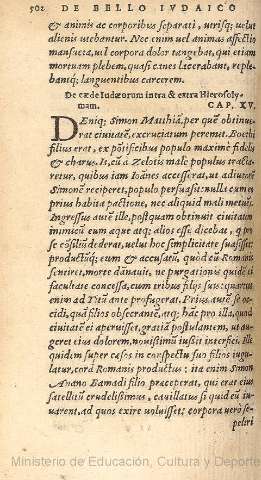 502 DE BELLO IVDAICO
& animis ac corporibus separati, utrisq; uelut
alienis utebantur. Nec enim uel animas affectio
mansueta, uel corpora dolor tangebat, qui etiam
mortuam plebem, quasi canes lacerabant, reple-
bantq; languentibus carcerem.
De cæde Iudæorum intra & extra Hierosoly-
mam. CAP. XV.
DEniq; Simon Matthiā, per quē obtinue-
rat ciuitatē, excruciatum peremit. Boethi
filius erat, ex pōtificibus populo maxime fidelis
& charus. Is, cū à Zelotis male populus tracta-
retur, quibus iam Ioānes accesserat, ut adiutorē
Simonē reciperet, populo persuasit: nulla cum eo
prius habita pactione, nec aliquid mali metuēs.
Ingressus autē ille, postquam obtinuit ciuitatem
inimicū eum æque atq; alios esse dicebat, q pro
se cōsiliū dederat, uelut hoc simplicitate suasisset:
productūq; eum & accusatū, quòd cū Romanis
sentiret, morte dānauit, ne purgationis quidē ei
facultate concessa, cum tribus filijs suis: quartus
enim ad Titū ante profugerat. Prius autē se oc-
cidi, quā filios obsecrantē, atq; hāc pro illa, quòd
ciuitatē ei aperuisset, gratiā postulantem, ut au-
geret eius dolorem, nouissimū iussit interfici. Ille
quidem super cæsos in conspectu suo filios iugu-
latur, corā Romanis productus: ita enim Simon
Anano Bamadi filio præceperat, qui erat eius
satellitū crudelissimus, cauillatus si quid eū iu-
uarent, ad quos exire uoluisset: corpora uerò se-
peliri
Ministerio de Educación, Cultura y Deporte